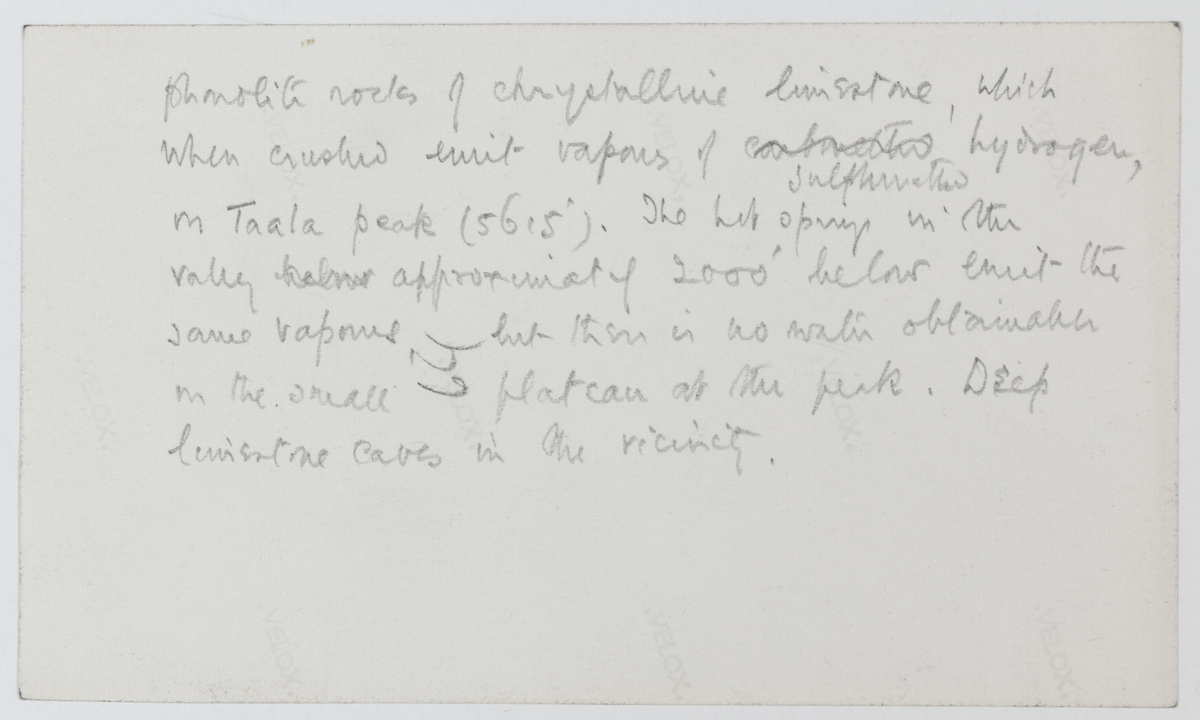 phonolite rocks of chrystalline limestone, which
when crushed emit vapours of carburetted hydrogen,
sulphuretted
on Taala peak (5615'). The hot springs in the
valley below approximately 2000' below emit the
same vapours, but there is no water obtainable
on the small plateau at the peak. Deep
limestone caves in the vicinity.
VELOX
VELOX
VELOX
VELOX
VELOX
VELOX
VELOX
VELOX
VELOX
VELOX